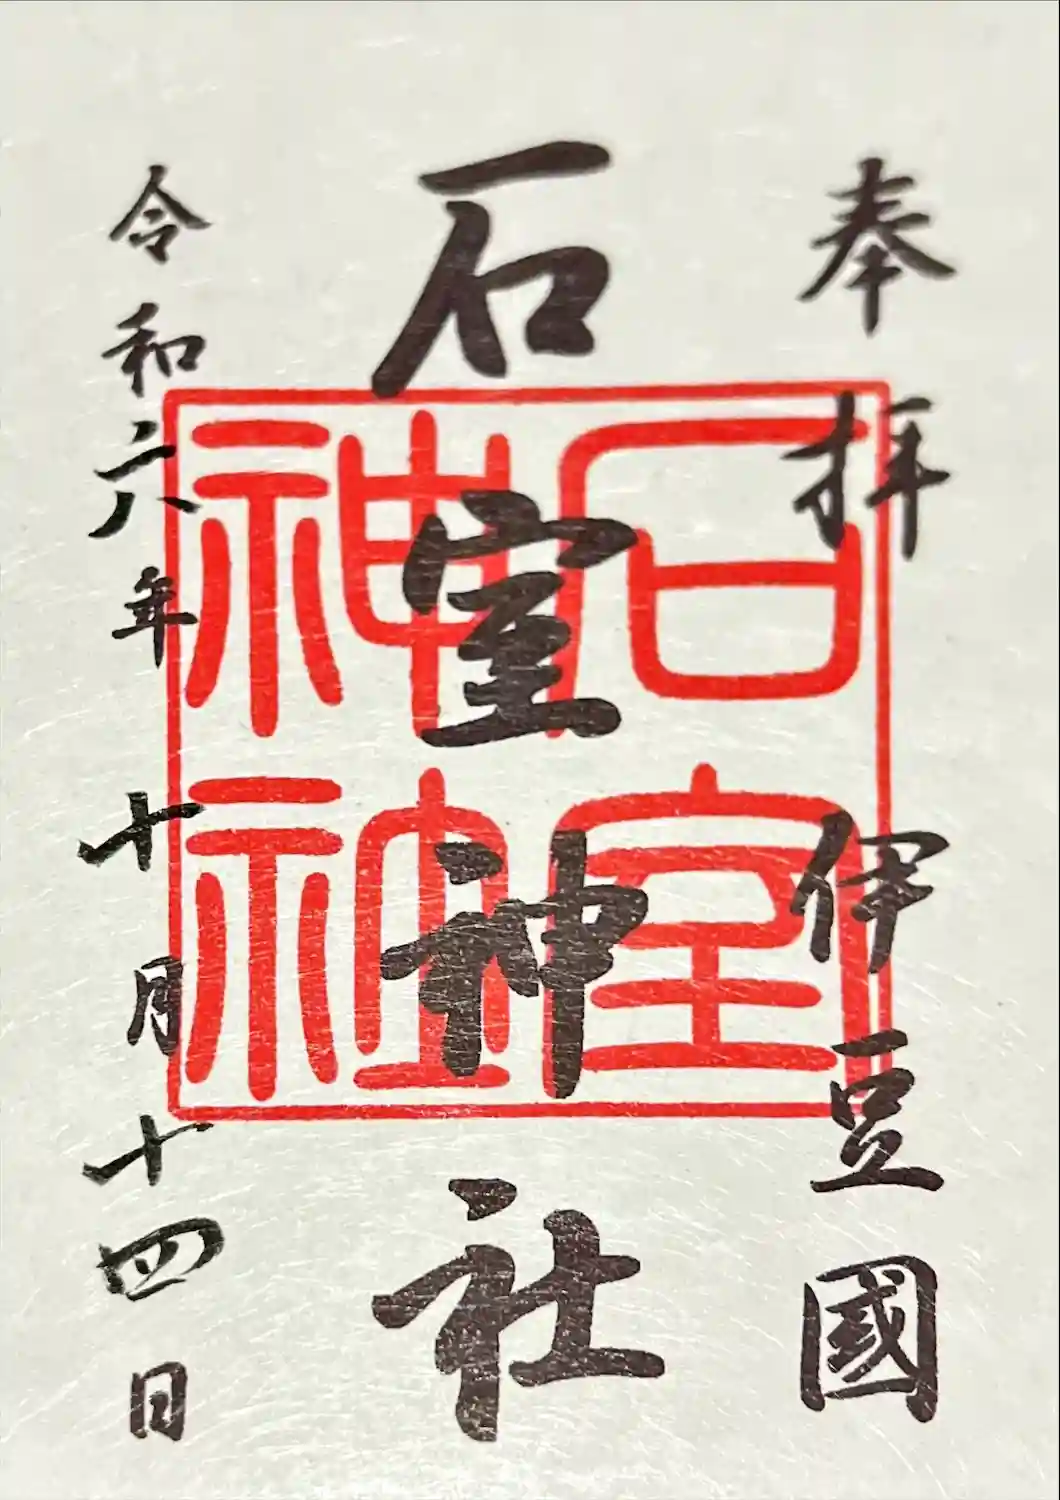 奉拝 伊豆國
石室神社
石室
神社
令和六年十月十四日